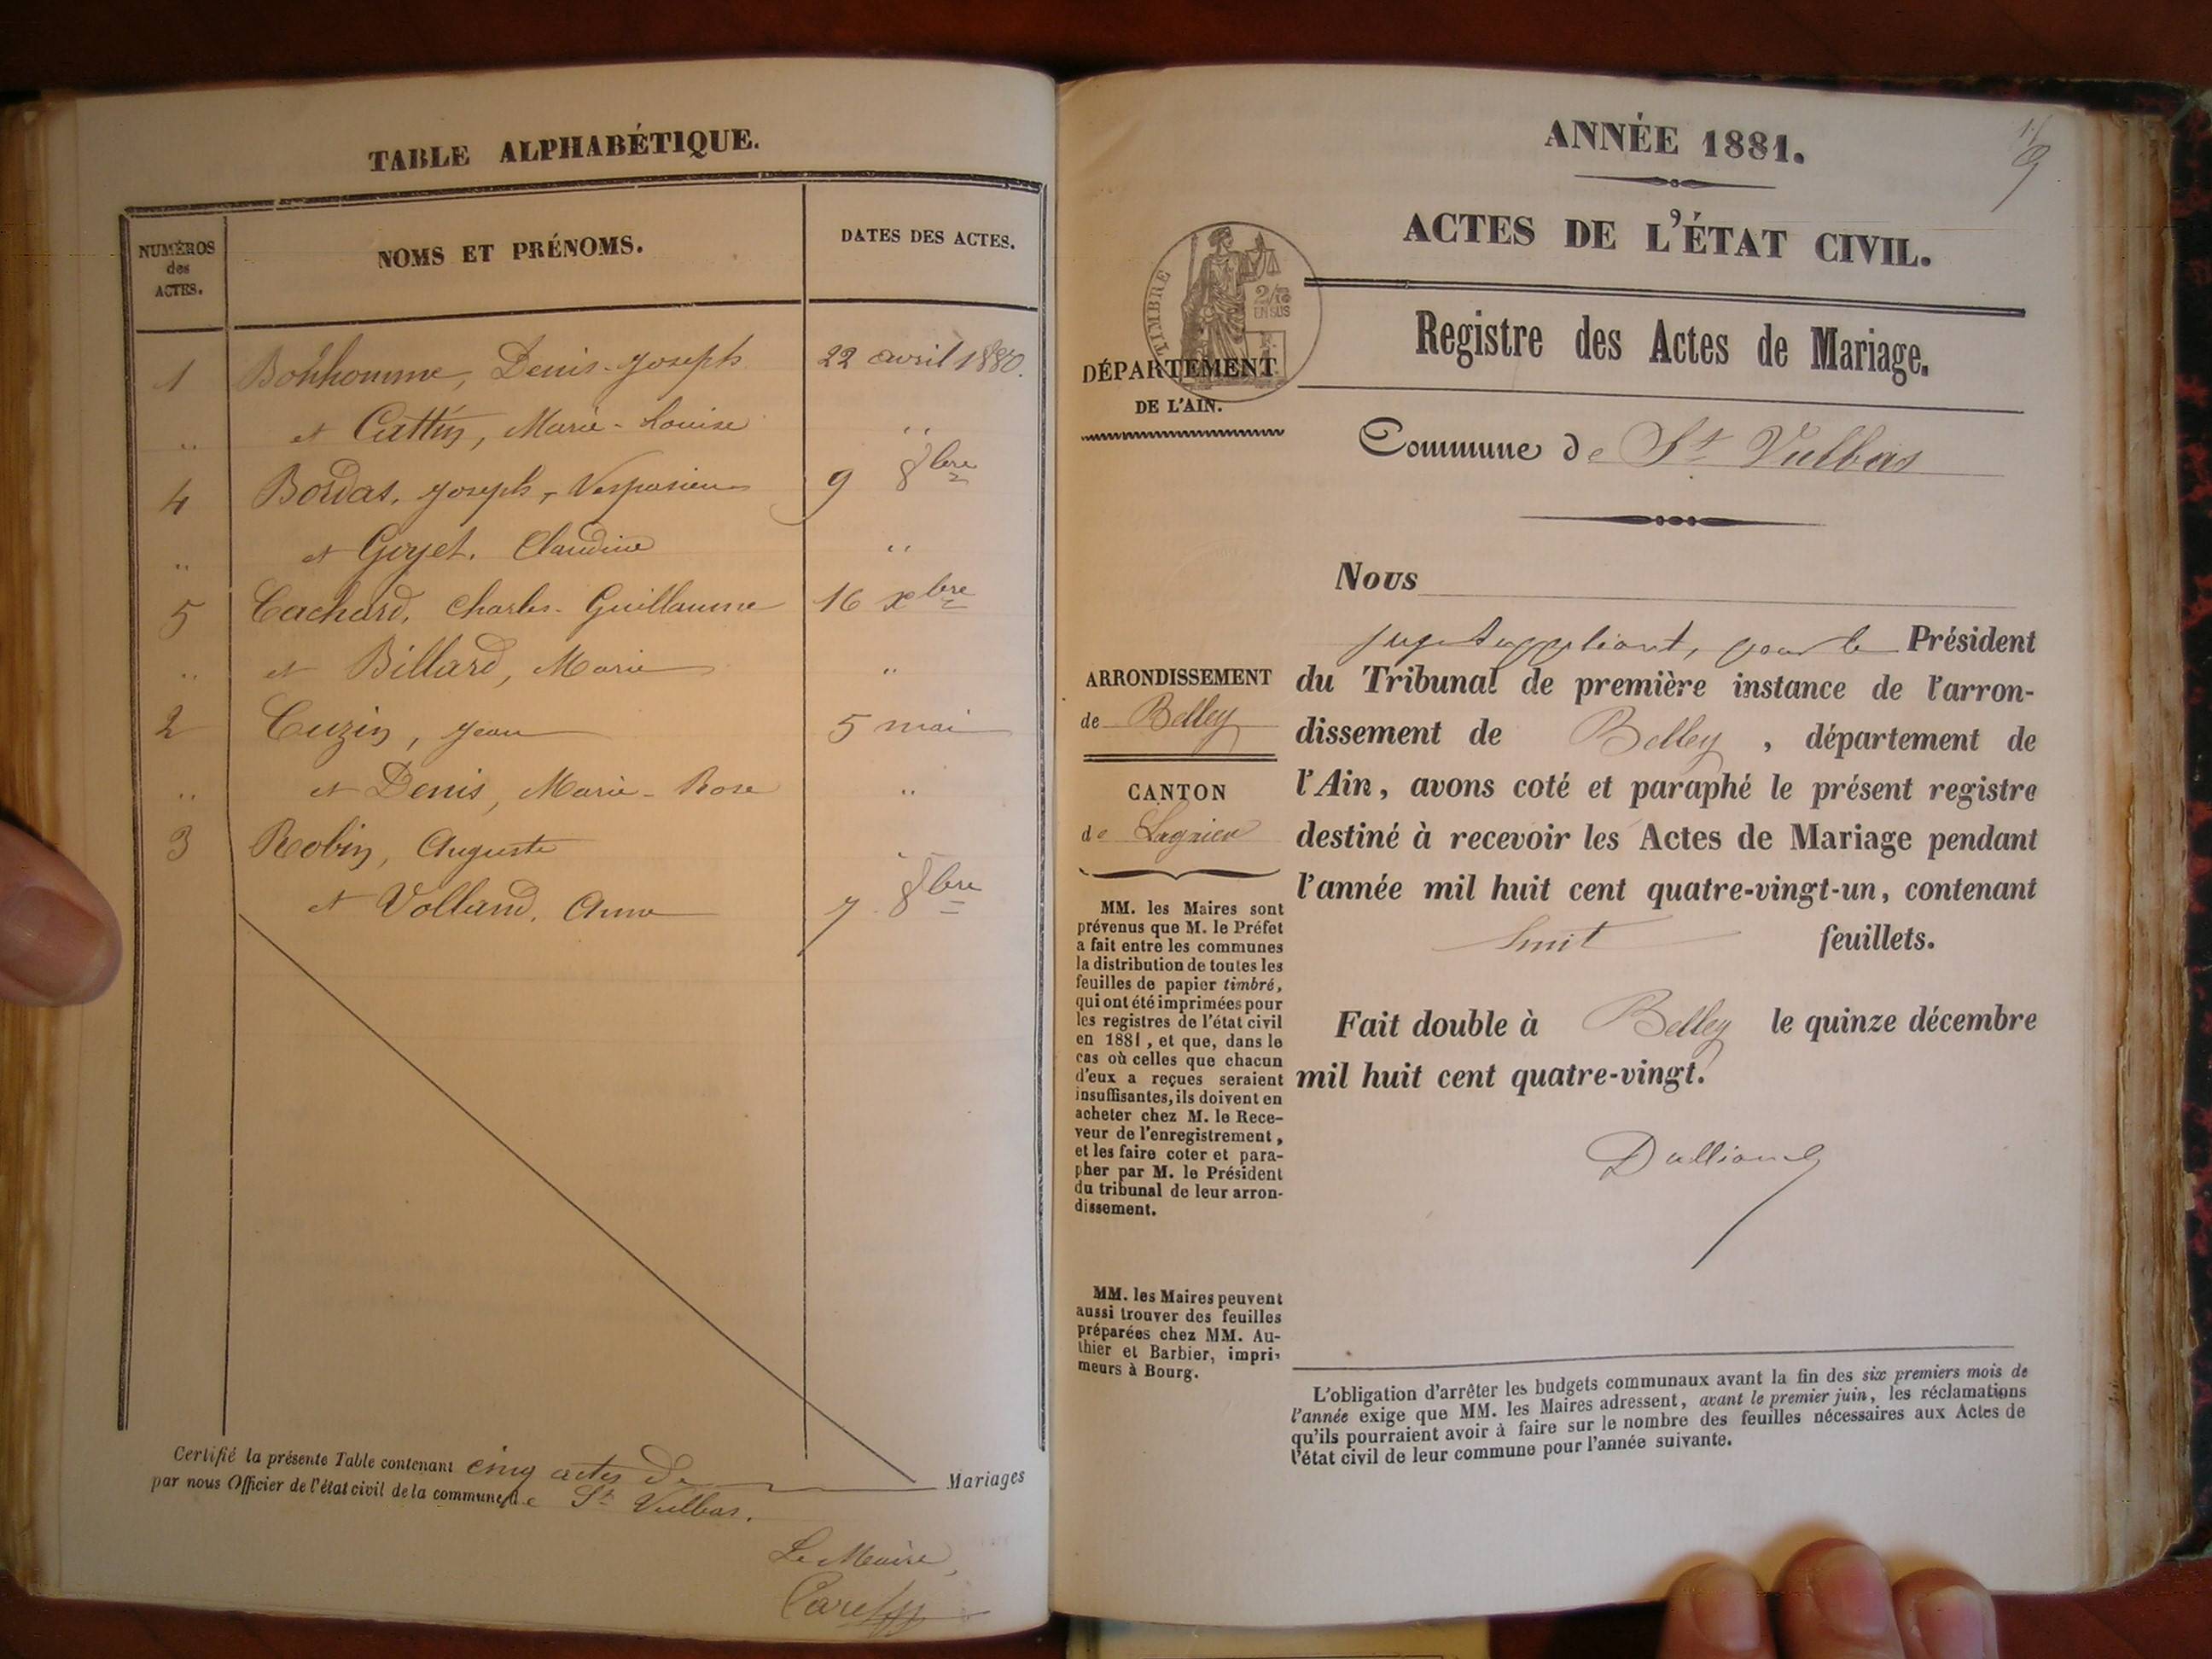 TABLE ALPHABÉTIQUE.
NUMÉROS des ACTES.
NOMS ET PRÉNOMS.
DATES DES ACTES.
1 Bonhomme, Denis-Joseph 22 avril 1880.
" et Cattin, Marie-Louise "
4 Bordat, Joseph, Vespasien 9 8bre
" et Goyet, Claudine "
5 Cachard, Charles-Guillaume 16 xbre
" et Billard, Marie "
2 Cuzin, Jean 5 mai
" et Denis, Marie-Rose "
3 Robin, Auguste
et Volland, Anne 7 8bre
Certifié la présente Table contenant cinq actes de Mariages
par nous Officier de l'état civil de la commune de St Vulbas.
Le Maire,
ANNÉE 1881.
ACTES DE L'ÉTAT CIVIL.
TIMBRE
2/10
EN SUS
Registre des Actes de Mariage.
DÉPARTEMENT
DE L'AIN.
Commune de St Vulbas
Nous
juge suppléant, pour le Président
du Tribunal de première instance de l'arron-
dissement de Belley, département de
l'Ain, avons coté et paraphé le présent registre
destiné à recevoir les Actes de Mariage pendant
l'année mil huit cent quatre-vingt-un, contenant
huit feuillets.
Fait double à Belley le quinze décembre
mil huit cent quatre-vingt.
ARRONDISSEMENT
de Belley
CANTON
de Lagnieu
MM. les Maires sont
prévenus que M. le Préfet
a fait entre les communes
la distribution de toutes les
feuilles de papier timbré,
qui ont été imprimées pour
les registres de l'état civil
en 1881, et que, dans le
cas où celles que chacun
d'eux a reçues seraient
insuffisantes, ils doivent en
acheter chez M. le Rece-
veur de l'enregistrement,
et les faire coter et para-
pher par M. le Président
du tribunal de leur arron-
dissement.
MM. les Maires peuvent
aussi trouver des feuilles
préparées chez MM. Au-
thier et Barbier, impri-
meurs à Bourg.
L'obligation d'arrêter les budgets communaux avant la fin des six premiers mois de
l'année exige que MM. les Maires adressent, avant le premier juin, les réclamations
qu'ils pourraient avoir à faire sur le nombre des feuilles nécessaires aux Actes de
l'état civil de leur commune pour l'année suivante.